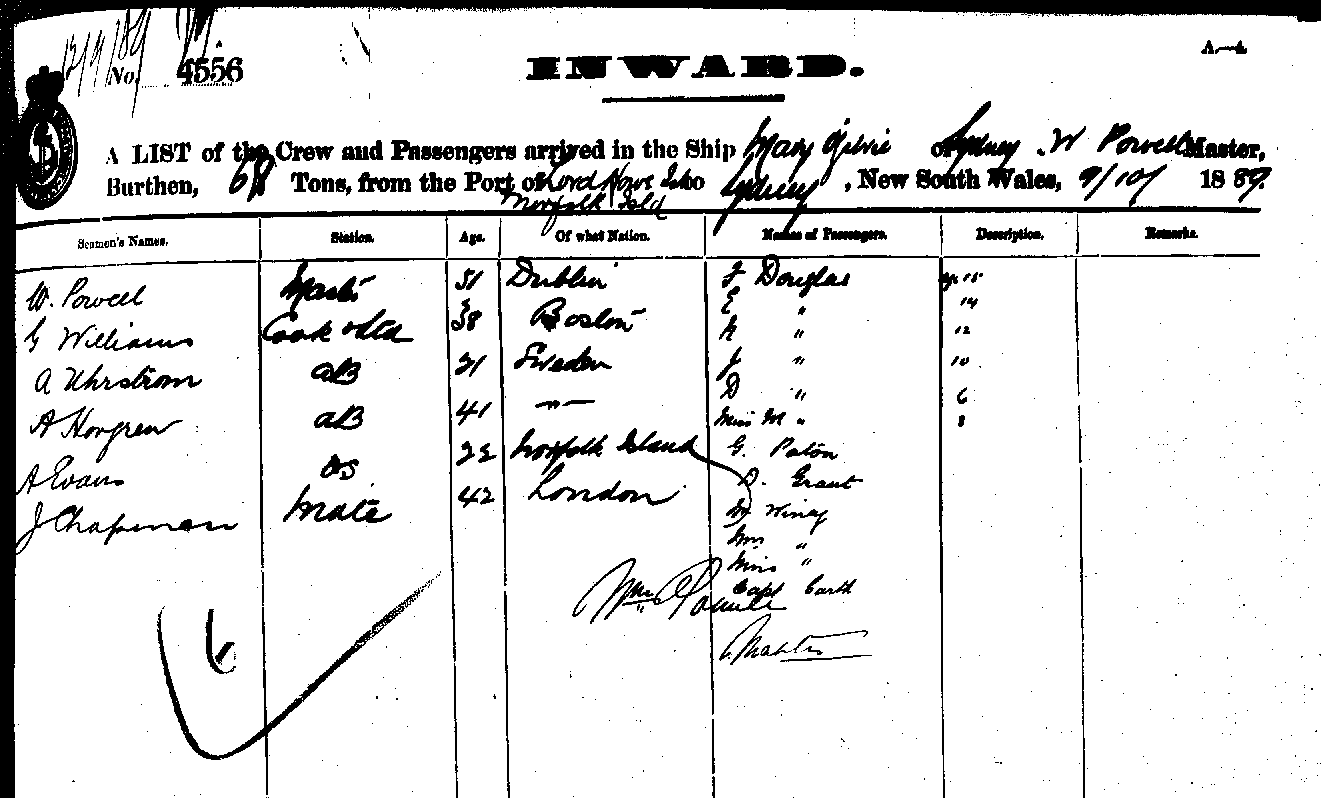 12/9/89
No. 4556
A—4
INWARD.
A LIST of the Crew and Passengers arrived in the Ship Mary Ogilvie of Sydney W Powell Master,
Burthen, Tons, from the Port of Lord Howe Isl to Sydney, New South Wales, 9/10/ 1889.
Norfolk Isld
Seamen's Names. Station. Age. Of what Nation. Names of Passengers. Description. Remarks.
W. Powell Master 51 Dublin F Douglas 15
G Williams Cook & Std 38 Boston E " 14
A Uhrstrom AB 21 Sweden " 12
A Horgren AB 41 —"— J " 10
A Evans OS 22 Norfolk Island D " 6
J Chapman Mate 42 London Miss M " 8
G. Paton
D. Grant
Winey
Mrs "
Miss "
Capt Carth
Wm Powell
Master
6